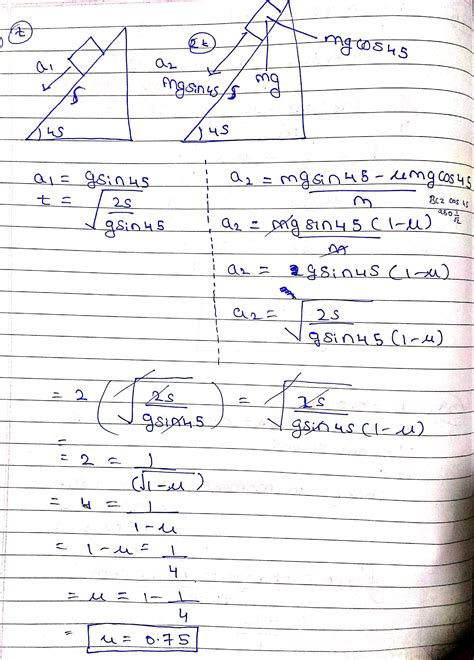 t
2t
a₁
a₂
mgcos45
mgsin45
mg
s
s
45
45
a₁ = gsin45
t = √(2s/gsin45)
a₂ = mgsin45 - μmgcos45 / m
a₂ = mgsin45 (1-μ) / m
a₂ = gsin45 (1-μ)
a₂ = √(2s/gsin45(1-μ))
= 2 (√(2s/gsin45)) = √(2s/gsin45(1-μ))
=
= 2 = 1/(√1-μ)
= 4 = 1/1-μ
= 1-μ = 1/4
= μ = 1 - 1/4
= μ = 0.75